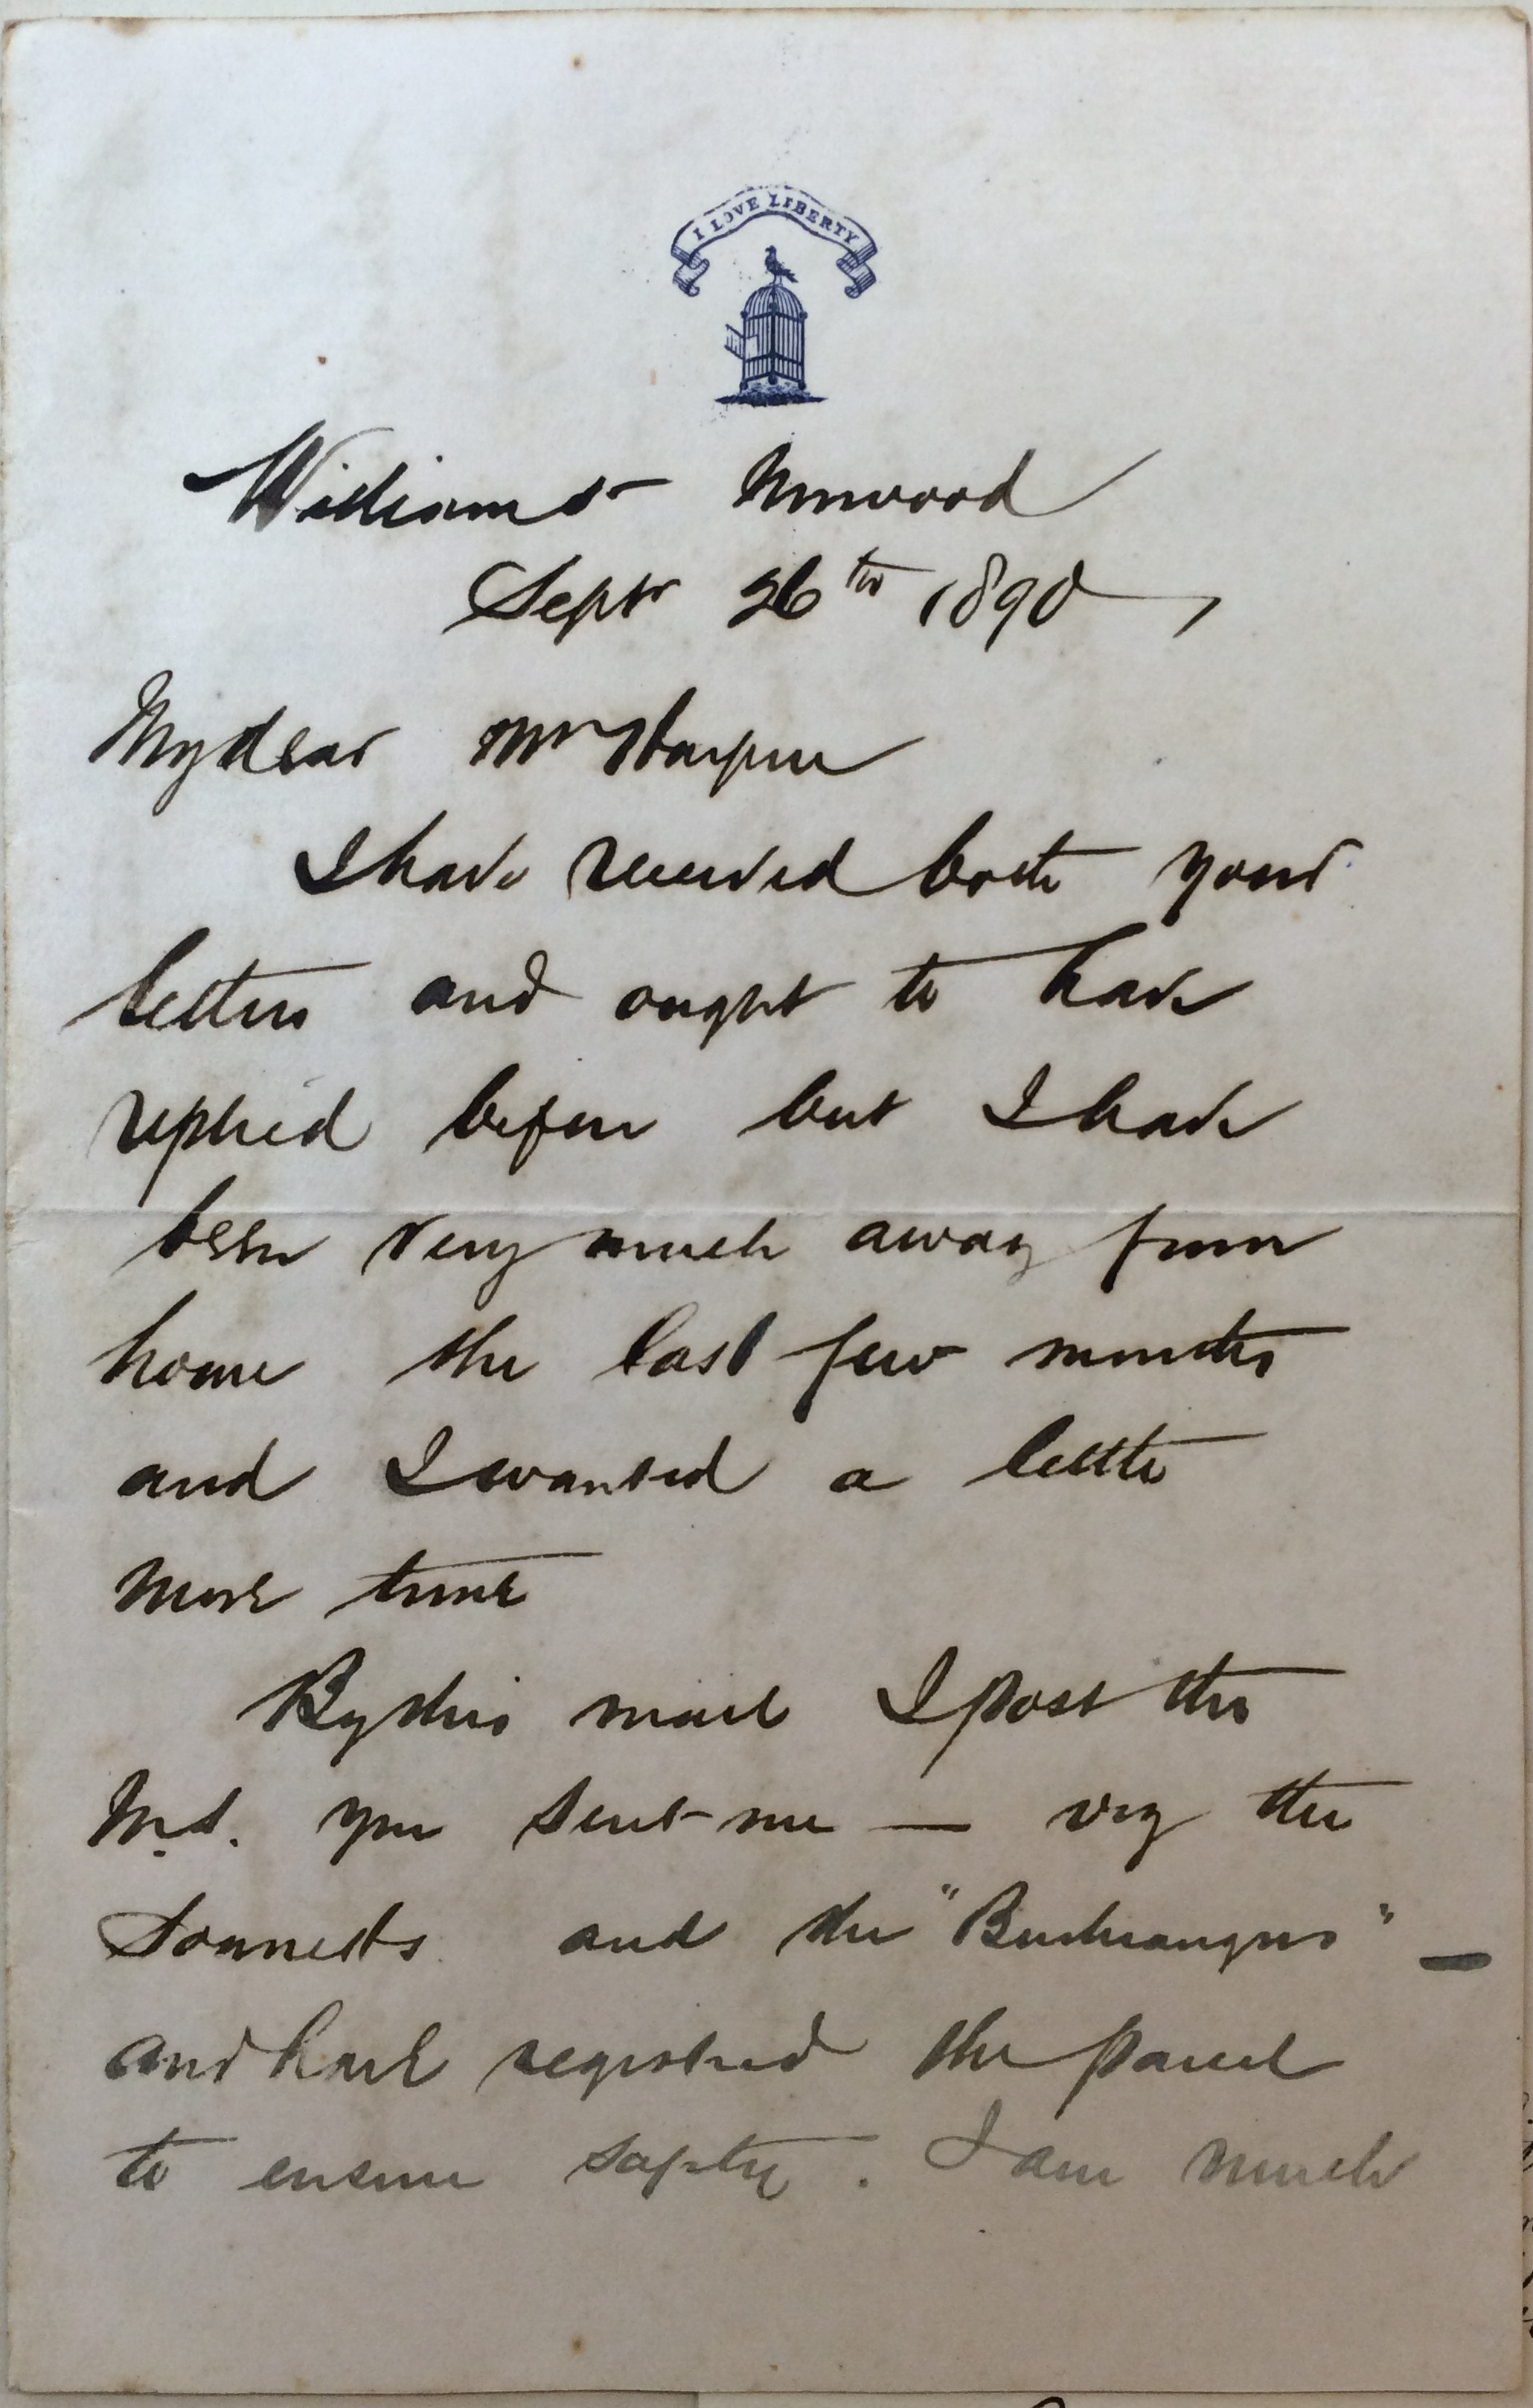 I LOVE LIBERTY
William St Norwood
Sept 26th 1890
My dear Mrs Harpur
I have received both your
letters and ought to have
replied before but I have
been very much away from
home the last few months
and I wanted a little
more time
By this mail I post the
M.S. you sent me — viz the
Sonnets and the "Bushrangers" —
and have registered the parcel
to ensure safety. I am much